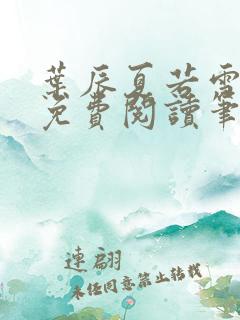 葉辰夏若雪
免費閱讀筆
連翩
未經同意禁止轉載